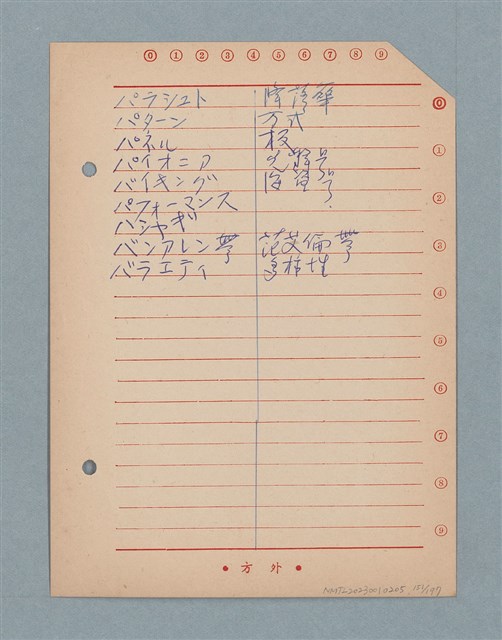 0 1 2 3 4 5 6 7 8 9
パラシュト 降落傘
パターン 方式
パネル 板
パイオニア 先驅号
バイキング 海盜号
パフォーマンス
ハシャギ
バンアレン帶 范艾倫帶
バラエティ 多樣性
0
1
2
3
4
5
6
7
8
9
• 方 外 •
NMTL20230010205, 153/197